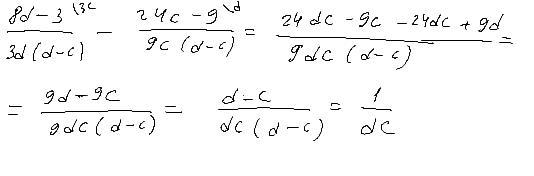 (8d - 3 \3c)/(3d (d - c)) - (24c - 9 \d)/(9c (d - c)) = (24dc - 9c - 24dc + 9d)/(9dc (d - c)) =
= (9d - 9c)/(9dc (d - c)) = (d - c)/(dc (d - c)) = 1/(dc)